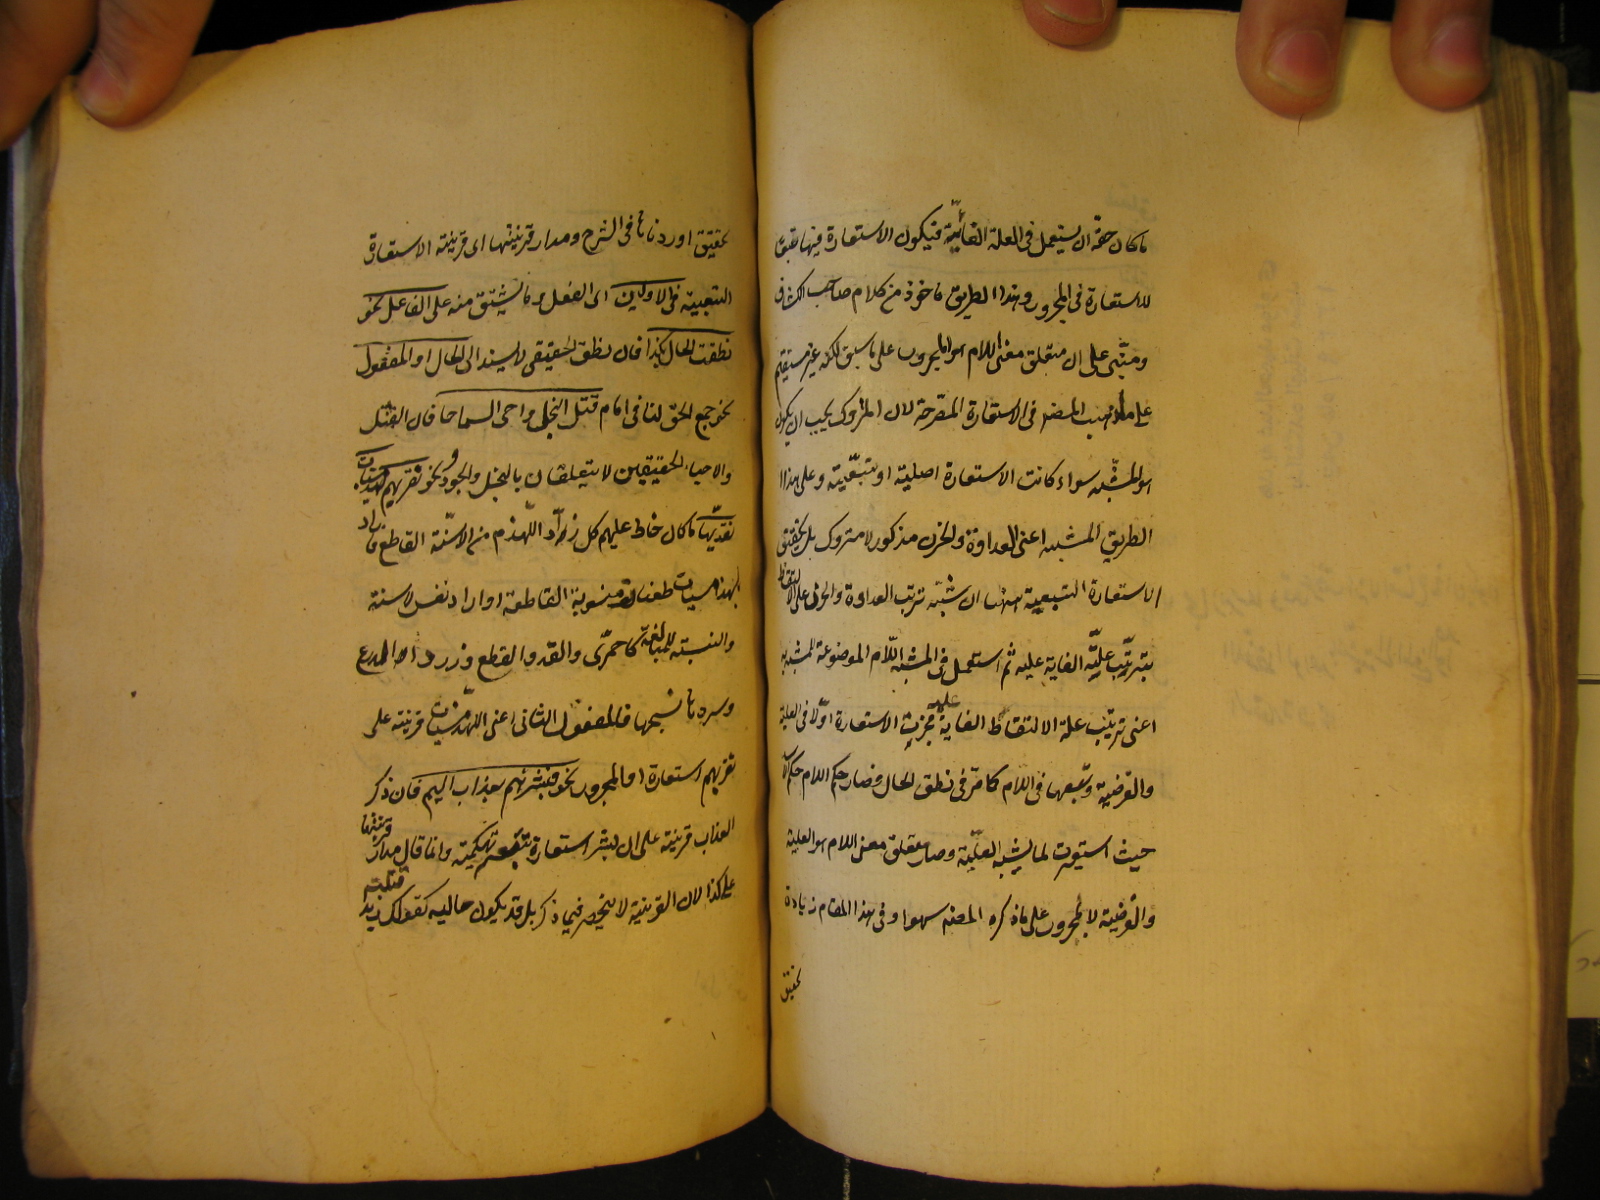 ما كان حقه ان يستعمل في العلة الغائية فتكون الاستعارة فيها تبعًا
للاستعارة في المجرور وهذا الطريق مأخوذ من كلام صاحب الكشاف
ومبنى على ان متعلق معنى اللام هو المجرور على ما سبق لكنه غير مستقيم
على مذهب المصنف في الاستعارة المصرحة لان المتروك يجب ان يكون
هو المشبه سواء كانت الاستعارة اصلية او تبعية وعلى هذا
الطريق المشبه اعنى العداوة والحزن مذكور لا متروك بل تحقيق
الاستعارة التبعية ههنا ان شبه ترتب العداوة والحزن على الالتقاط
بترتب علية الغاية عليه ثم استعمل في المشبه اللام الموضوعة للمشبه به
اعنى ترتب علة الالتقاط الغائية عليه فجرت الاستعارة اولا في العلية
والغرضية وتبعها في اللام كما مر في نطق الحال وصار حكم اللام حكم الا
حيث استعيرت لما يشبه العلية وصار متعلق معنى اللام هو العلية
والغرضية لا المجرور على ما ذكره المصنف سهوا وفي هذا المقام زيادة
تحقيق
تحقيق اوردناها في الشرح ومدار قرينتها اى قرينة الاستعارة
التبعية في الاولين اى الفعل وما يشتق منه على الفاعل نحو
نطقت الحال بكذا فان نطق الحقيقي لا يسند الى الحال او المفعول
نحو جمع الحق لنا في امام قتل البخل واحى السماحا فان القتل
والاحياء الحقيقيين لا يتعلقان بالبخل والجود ونحو نقريهم لهذميات
نقد بها ما كان خاط عليهم كل زراد اللهذم من الاسنة القاطع فاراد
بهذميات طعنات منسوبة القاطعة او اراد نفس الاسنة
والنسبة للمبالغة كاحمرى والقد والقطع وزرد الدرع
وسردها نسجها فالمفعول الثاني اعنى اللهذميات قرينة على
نقريهم استعارة او المجرور نحو فبشرهم بعذاب اليم فان ذكر
العذاب قرينة على ان بشر استعارة تبعية تهكمية وانما قال مدار قرينتها
على كذا لان القرينة لا تنحصر فيما ذكر بل قد يكون حالية كقولك قتلت زيدا